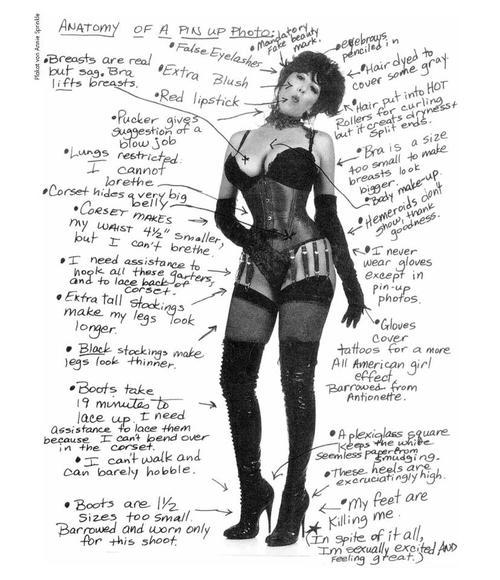 Plakat von Annie Sprinkle
ANATOMY OF A PIN UP PHOTO:
• Breasts are real
but sag. Bra
lifts breasts.
• False Eyelashes
• Extra Blush
• Red lipstick
• Mandatory
fake beauty
mark.
• eyebrows
penciled in
• Hair dyed to
cover some gray
• Hair put into HOT
Rollers for curling
but it creats dryness +
split ends.
• Pucker gives
suggestion of a
blow job
• Lungs restricted.
I cannot
brethe.
• Corset hides a very big
belly
• CORSET MAKES
my WAIST 4½" smaller,
but I can't brethe.
• I need assistance to
hook all these garters,
and to lace back of
corset.
• Extra tall stockings
make my legs look
longer.
• Black stockings make
legs look thinner.
• Boots take
19 minutes to
lace up. I need
assistance to lace them
because I can't bend over
in the corset.
• I can't walk and
can barely hobble.
• Boots are 1½
sizes too small.
Barrowed and worn only
for this shoot.
• Bra is a size
too small to make
breasts look
bigger.
• Body make-up.
• Hemeroids don't
show, thank
goodness.
• I never
wear gloves
except in
pin-up
photos.
• Gloves
cover
tattoos for a more
All American girl
effect.
Barrowed from
Antionette.
• A plexiglass square
keeps the white
seamless paper from
smudging.
• These heels are
excruciatingly high.
• My feet are
Killing me.
(In spite of it all,
I'm sexually excited AND
feeling great.)